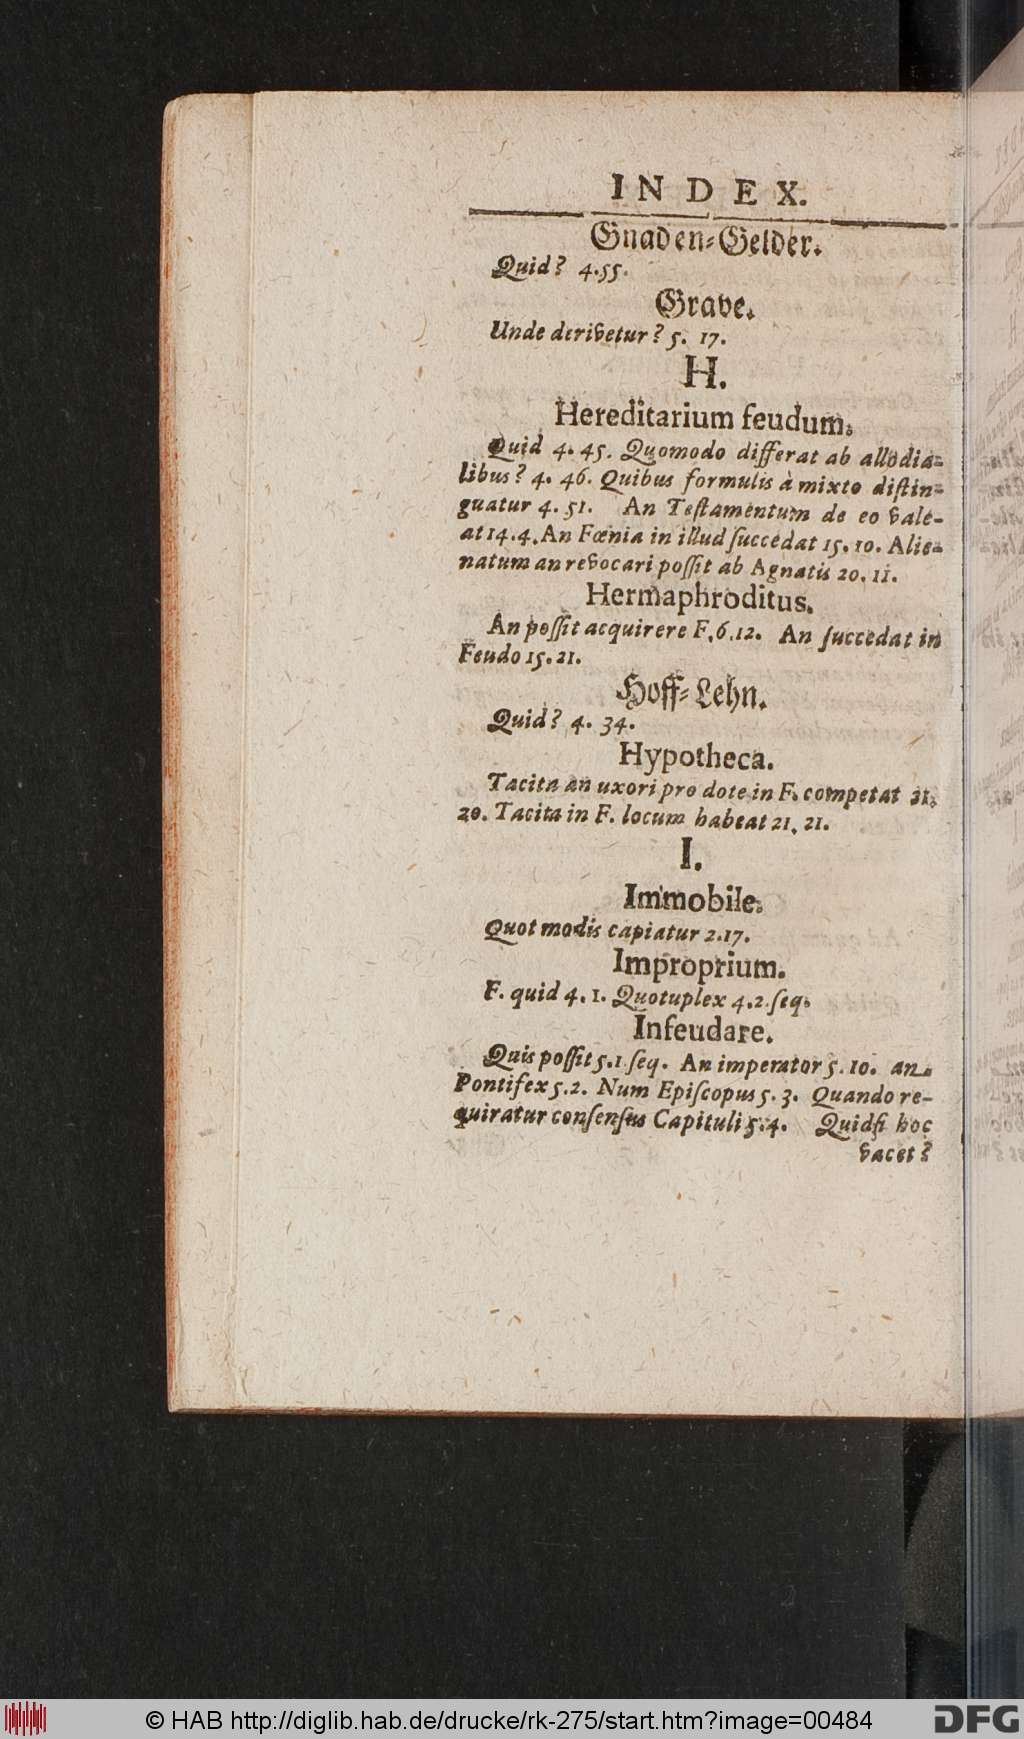 INDEX.
Gnaden-Gelder.
Quid? 4.55.
Grave.
Unde derivetur? 5. 17.
H.
Hereditarium feudum.
Quid 4. 45. Quomodo differat ab allodia-
libus? 4. 46. Quibus formulis à mixto distin-
guatur 4. 51. An Testamentum de eo vale-
at 14. 4. An Fœnia in illud succedat 15. 10. Alie-
natum an revocari possit ab Agnatis 20. 11.
Hermaphroditus.
An possit acquirere F. 6. 12. An succedat in
Feudo 15. 21.
Hoff-Lehn.
Quid? 4. 34.
Hypotheca.
Tacita an uxori pro dote in F. competat 21.
20. Tacita in F. locum habeat 21, 21.
I.
Immobile.
Quot modis capiatur 2.17.
Improprium.
F. quid 4. 1. Quotuplex 4. 2. seq.
Infeudare.
Quis possit 5. 1. seq. An imperator 5. 10. an
Pontifex 5. 2. Num Episcopus 5. 3. Quando re-
quiratur consensus Capituli 5. 4. Quid si hoc
vacet?
© HAB http://diglib.hab.de/drucke/rk-275/start.htm?image=00484
DFG